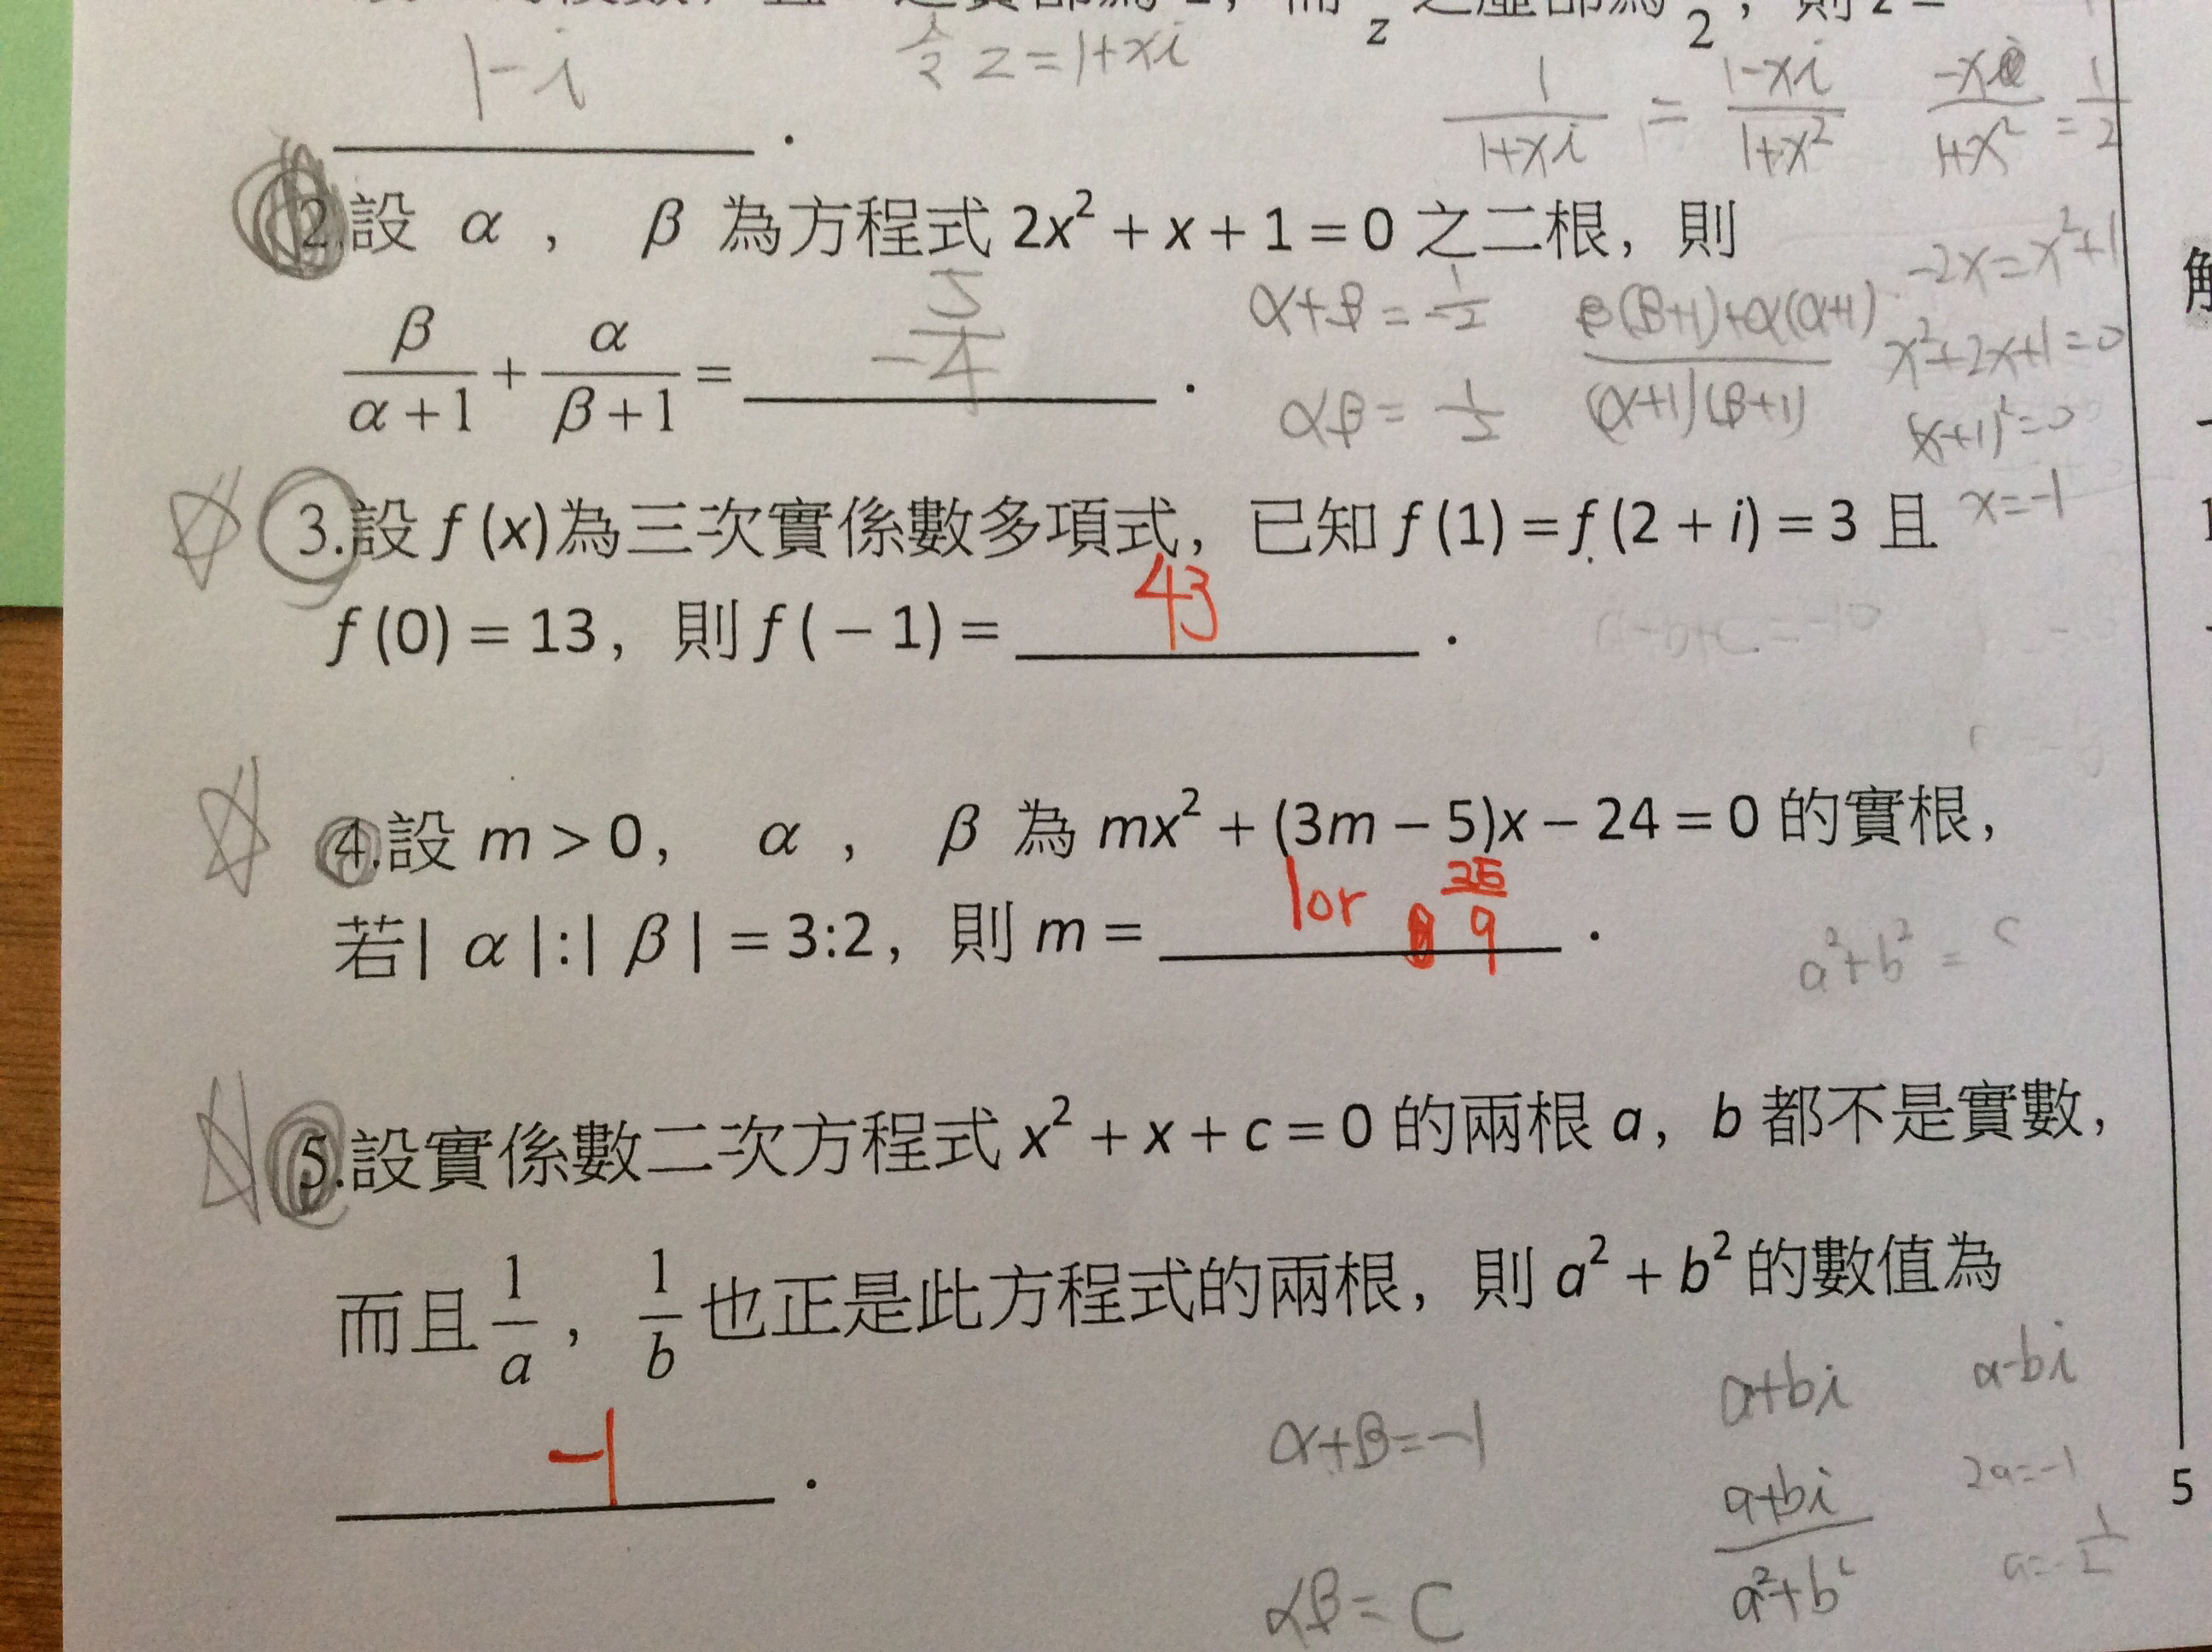 z 2
1-i 令 z=1+xi
1/(1+xi) = (1-xi)/(1+x²) -x/(1+x²) = 1/2
2.設 α ， β 為方程式 2x² + x + 1 = 0 之二根，則
-2x=x²+1
β/(α+1) + α/(β+1) = -5/4 .
α+β=-1/2 (β(β+1)+α(α+1))/((α+1)(β+1))
x²+2x+1=0
αβ=1/2
(x+1)²=0
x=-1
3.設 f (x)為三次實係數多項式，已知 f (1) = f (2 + i) = 3 且
f (0) = 13，則 f ( – 1) = 43 .
a-b+c=-10
4.設 m > 0， α ， β 為 mx² + (3m – 5)x – 24 = 0 的實根，
若| α |:| β | = 3:2，則 m = 1 or 25/9 .
a²+b² = c
5.設實係數二次方程式 x² + x + c = 0 的兩根 a，b 都不是實數，
而且 1/a ， 1/b 也正是此方程式的兩根，則 a² + b² 的數值為
-1 .
a+bi a-bi
α+β=-1
(a+bi)/(a²+b²) 2a=-1
a=-1/2
αβ=C
5